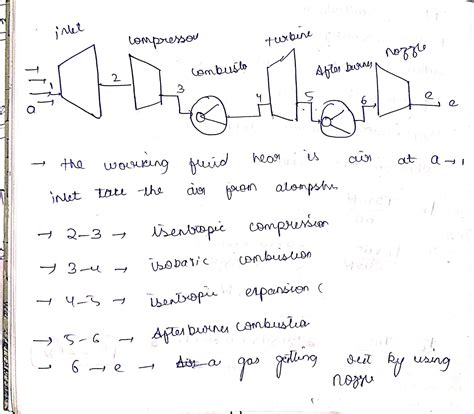 inlet
compressor
combusto
turbine
After burner
nozzle
a 1 2 3 4 5 6 e e
→ the working fluid hear is air at a → 1
inlet take the air from
→ 2-3 → isentropic compression
→ 3-4 → isobaric combustion
→ 4-5 → isentropic expansion (
→ 5-6 → Afterburner combustion
→ 6 → e → a gas getting out by using
nozzle